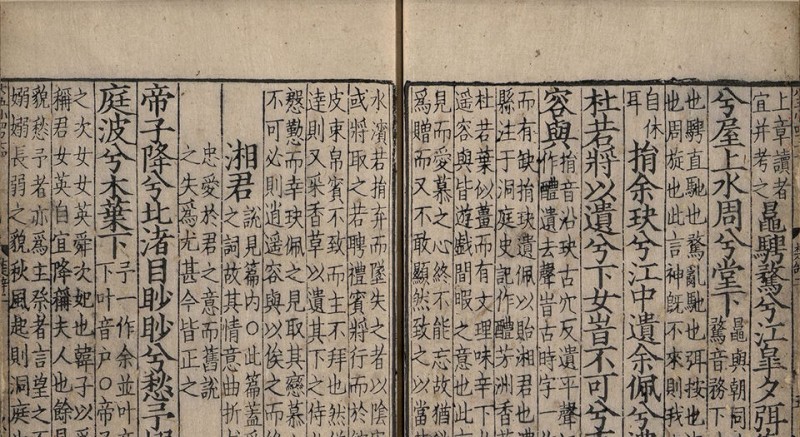 上章讀者
宜并考之
鼂騁騖兮江皋夕弭
兮屋上水周兮堂下
鼂與朝同
騖音務下
也騁直馳也騖亂馳也弭按也
也周旋也此言神旣不來則我
自休
耳
捐余玦兮江中遺余佩兮
杜若將以遺兮下女峕不可兮
容與
捐音沿玦古穴反遺平聲
作醴遺去聲峕古時字
而有缺捐玦遺佩以貽湘君也
縣注于洞庭史記作醴芳洲香
杜若葉似薑而有文理味辛下
遥容與皆遊戲閒暇之意也此
見而愛慕之心終不能忘故猶
爲贈而又不敢顯然致之以當
水濱若捐弃而墜失之者以陰
或將取之若聘禮賓將行而於
皮束帛賓不致而主不拜也然
達則又采香草以遺其下之侍
慇懃而幸玦佩之見取其戀慕
不可必則逍遥容與以俟之而
湘君
說見篇内○此篇蓋
之詞故其情意曲折
忠愛於君之意而舊說
之失爲尤甚今皆正之
帝子降兮北渚目眇眇兮愁予
庭波兮木葉下
予一作余並叶音
下叶音戶○帝子
之次女女英舜次妃也韓子以
稱君女英自宜降稱夫人也餘見
貌愁予者亦爲主祭者言望之
嫋嫋長弱之貌秋風起則洞庭